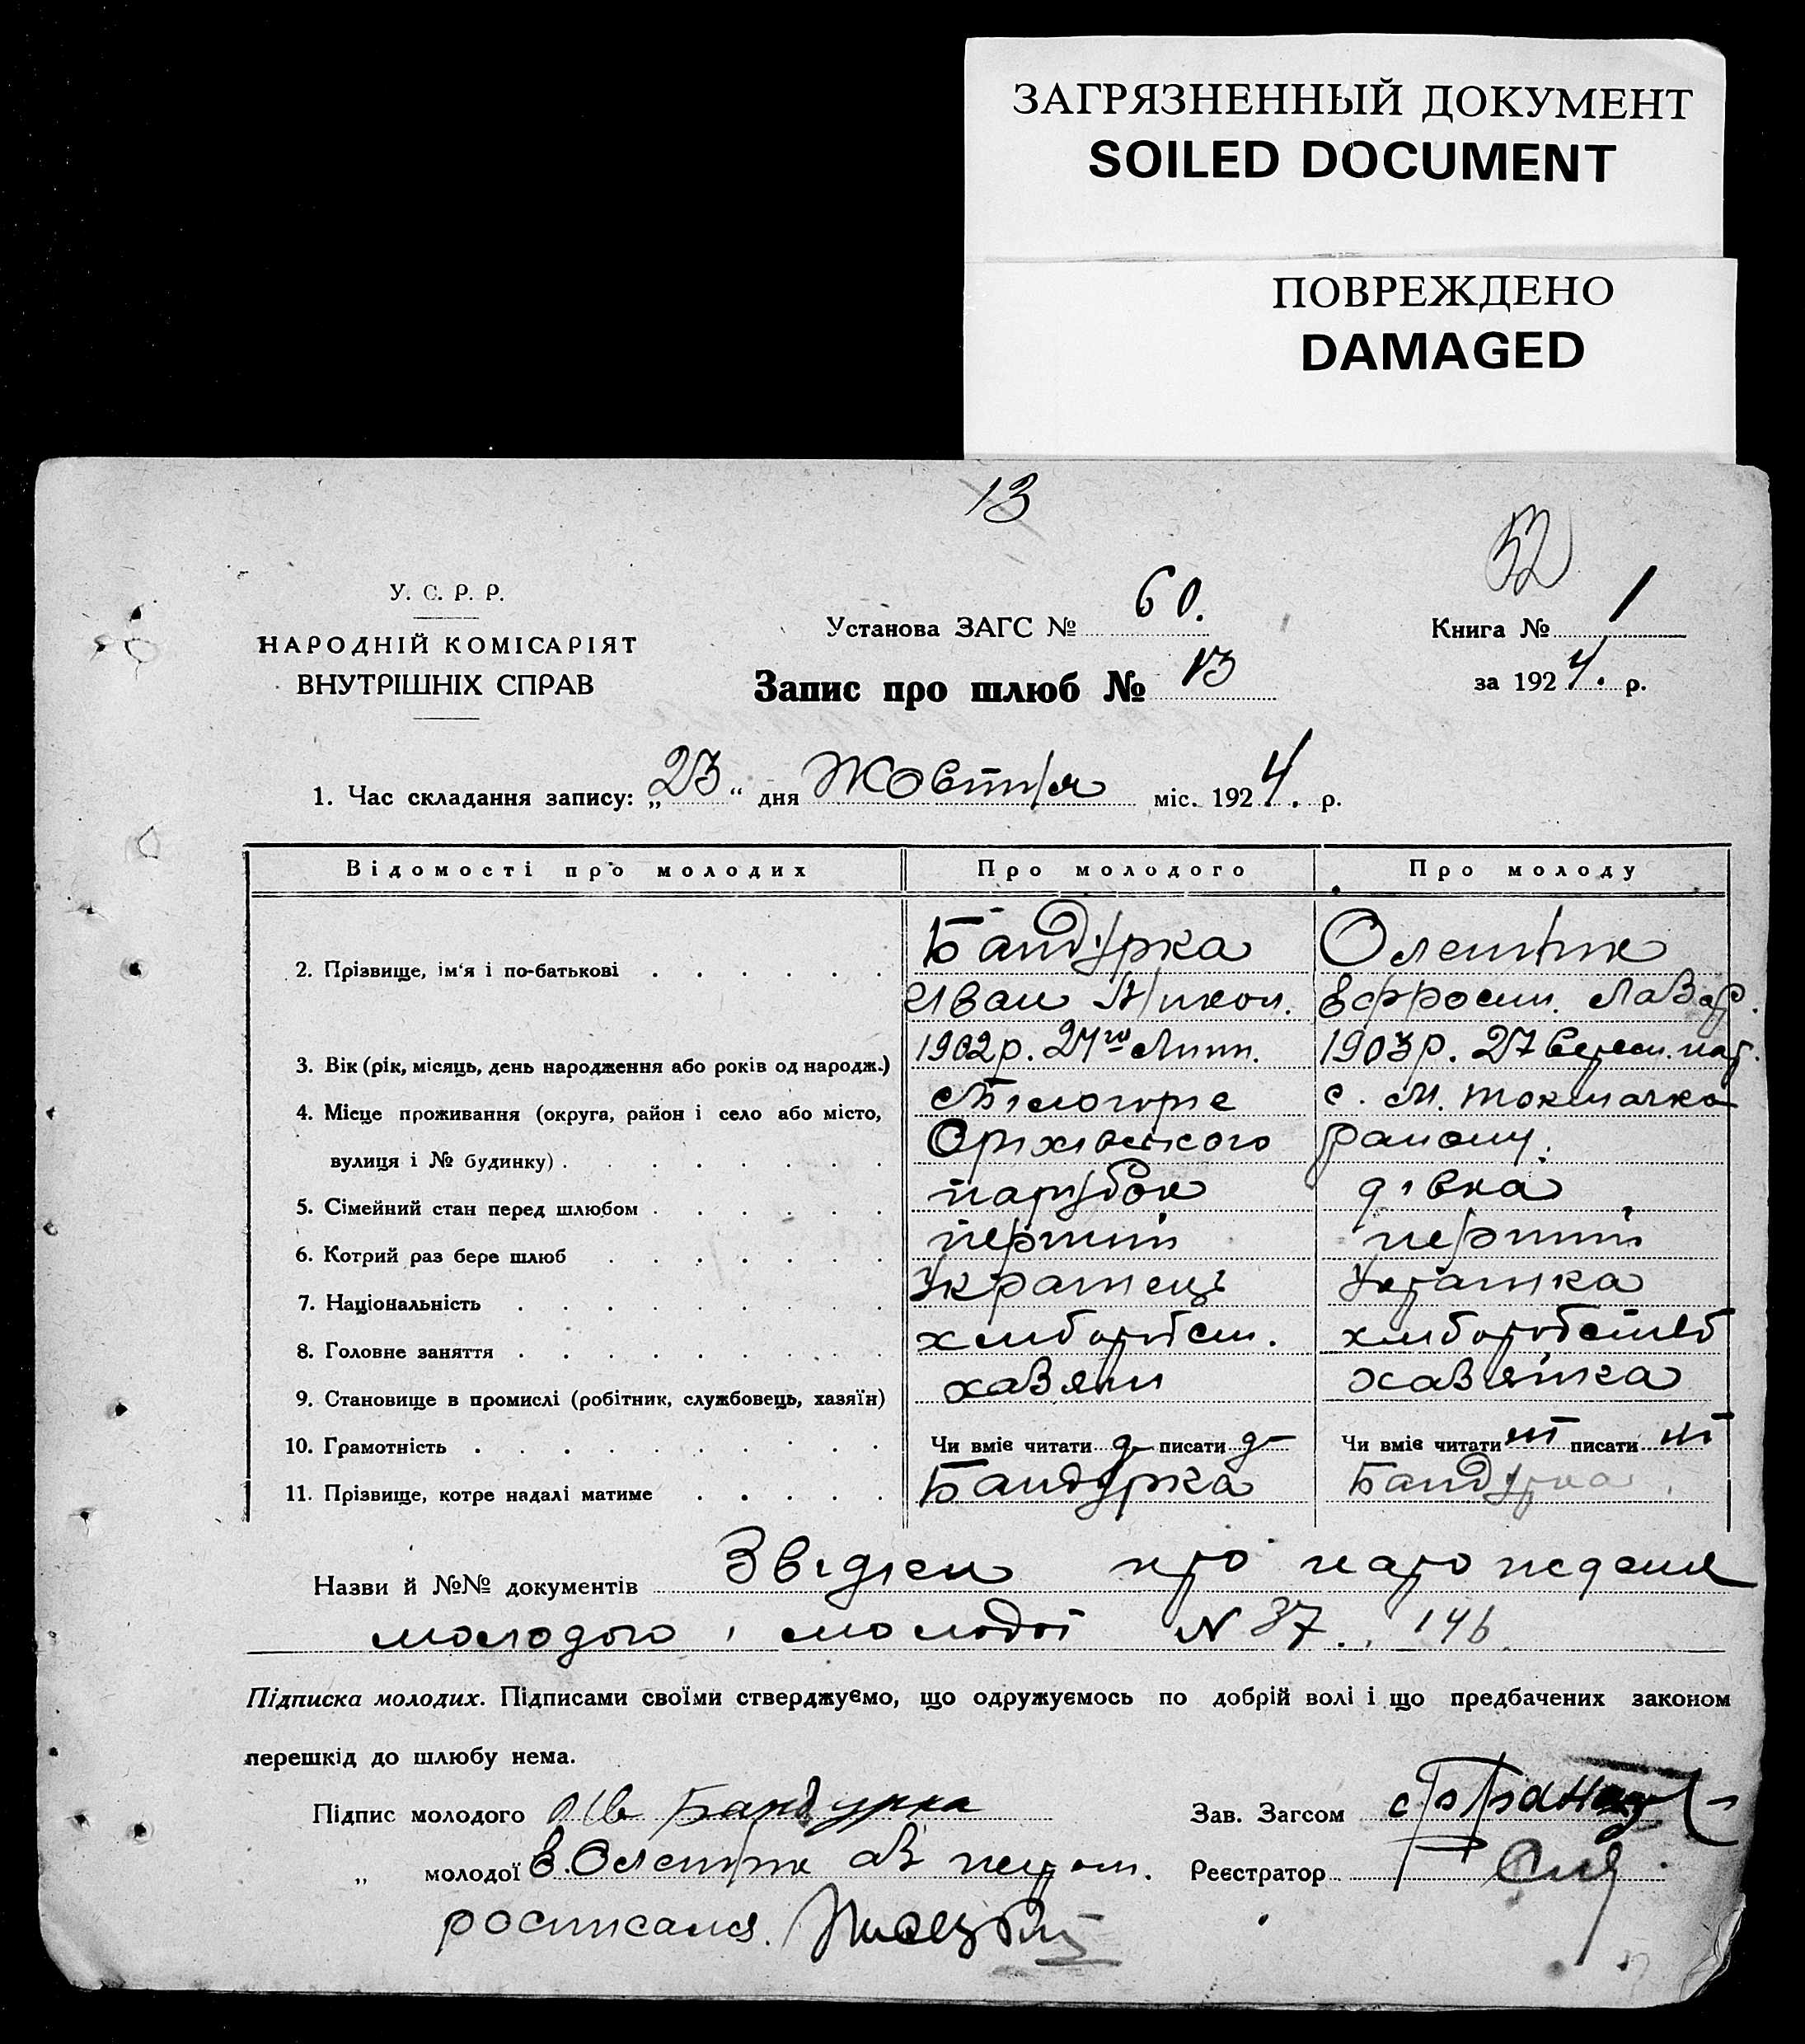 ЗАГРЯЗНЕННЫЙ ДОКУМЕНТ
SOILED DOCUMENT
ПОВРЕЖДЕНО
DAMAGED
13
52
У. С. Р. Р.
НАРОДНІЙ КОМІСАРІЯТ
ВНУТРІШНІХ СПРАВ
Установа ЗАГС № 60.
Запис про шлюб № 13
Книга № 1
за 1924. р.
1. Час складання запису: „23“ дня Жовтня міс. 1924. р.
Відомості про молодих Про молодого Про молоду
2. Прізвище, ім'я і по-батькові Бандурка Олейник
Иван Никол. Ефросин. Лавр.
3. Вік (рік, місяць, день народження або років од народж.) 1902 р. 24го Липн. 1903 р. 27 Вересн.
4. Місце проживання (округа, район і село або місто, Білогорје с. М. Токмачка
вулиця і № будинку) Оріхівського району.
5. Сімейний стан перед шлюбом парубок дівка
6. Котрий раз бере шлюб перший перший
7. Національність Украінець Украінка
8. Головне заняття хліборобст. хліборобство
9. Становище в промислі (робітник, службовець, хазяїн) хазяін хазяйка
10. Грамотність Чи вміє читати д- писати д- Чи вміє читати ні писати ні
11. Прізвище, котре надалі матиме Бандурка Бандурка
Назви й №№ документів Звідки про народження
молодого і молодоі N 37. , 146
Підписка молодих. Підписами своїми стверджуємо, що одружуємось по добрій волі і що предбачених законом
перешкід до шлюбу нема.
Підпис молодого Ив Бандурка Зав. Загсом
„ молодої Е. Олейник аз Реєстратор
росписался.